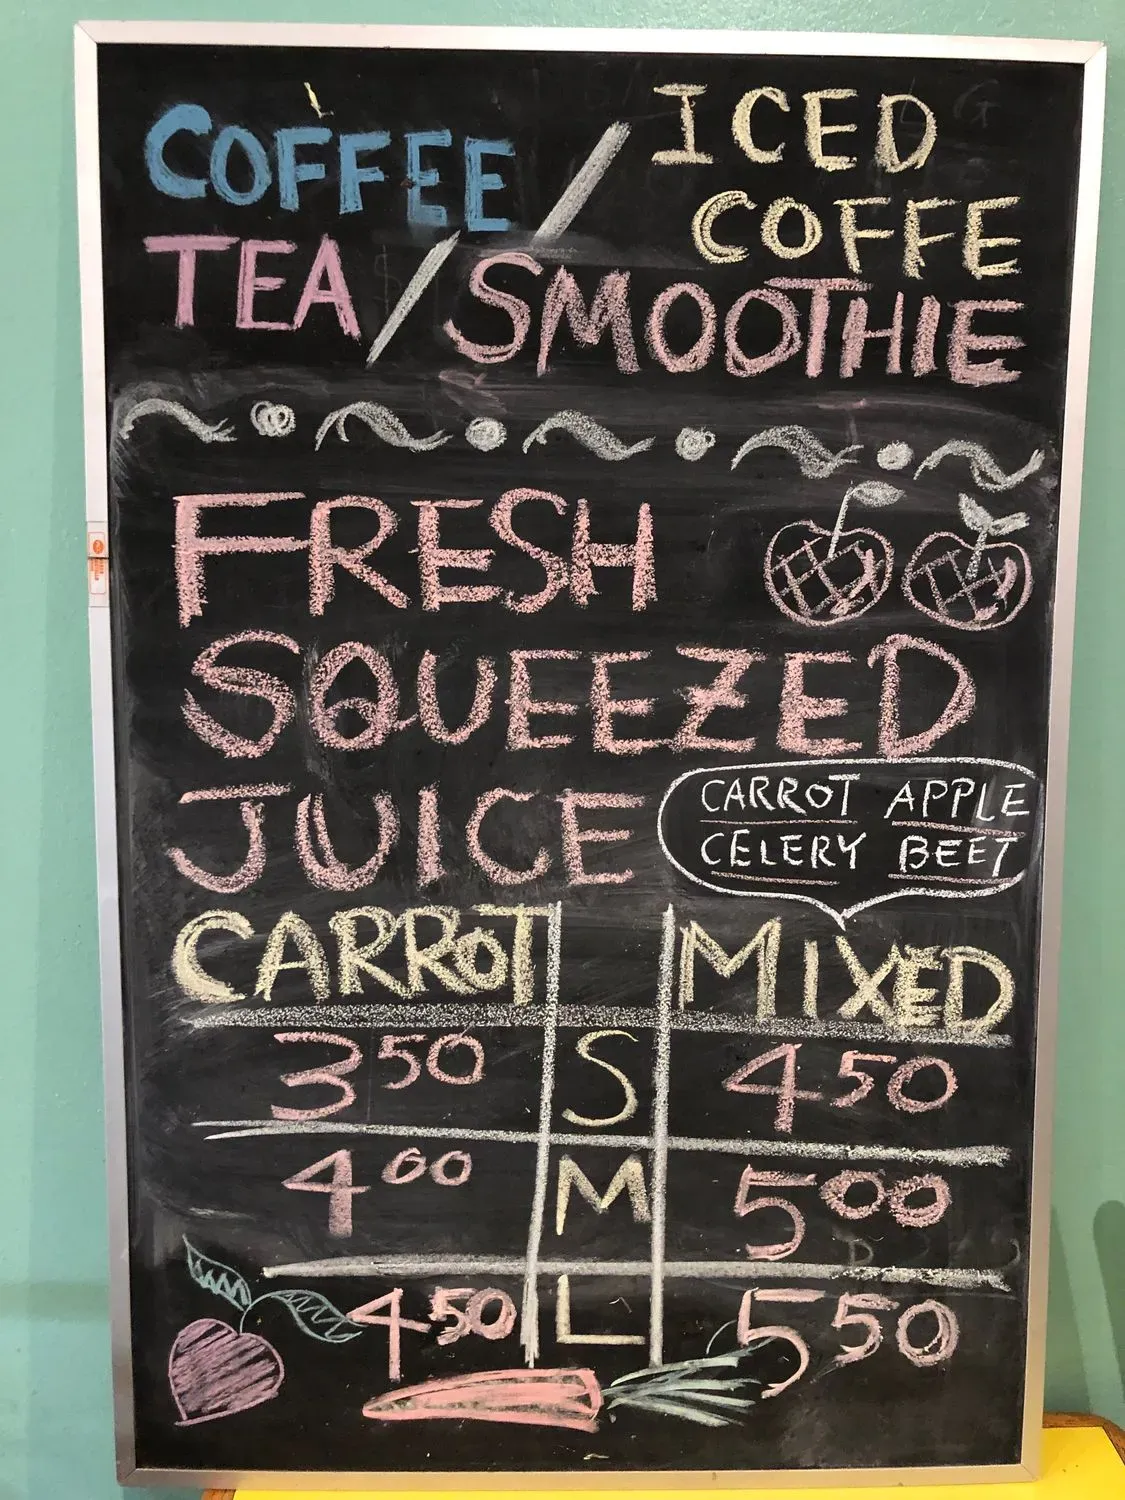 COFFEE / ICED
COFFE
TEA / SMOOTHIE
FRESH
SQUEEZED
JUICE
CARROT APPLE
CELERY BEET
CARROT MIXED
3 50 S 4 50
4 00 M 5 00
4 50 L 5 50